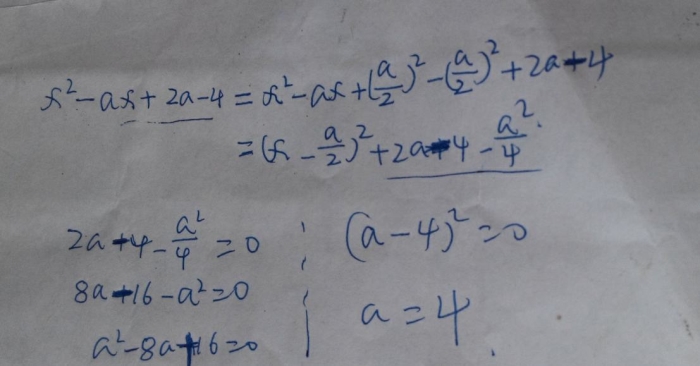 x²-ax+2a-4=x²-ax+(a/2)²-(a/2)²+2a-4
=(x-a/2)²+2a-4-a²/4.
2a-4-a²/4=0
8a-16-a²=0
a²-8a+16=0
(a-4)²=0
a=4.